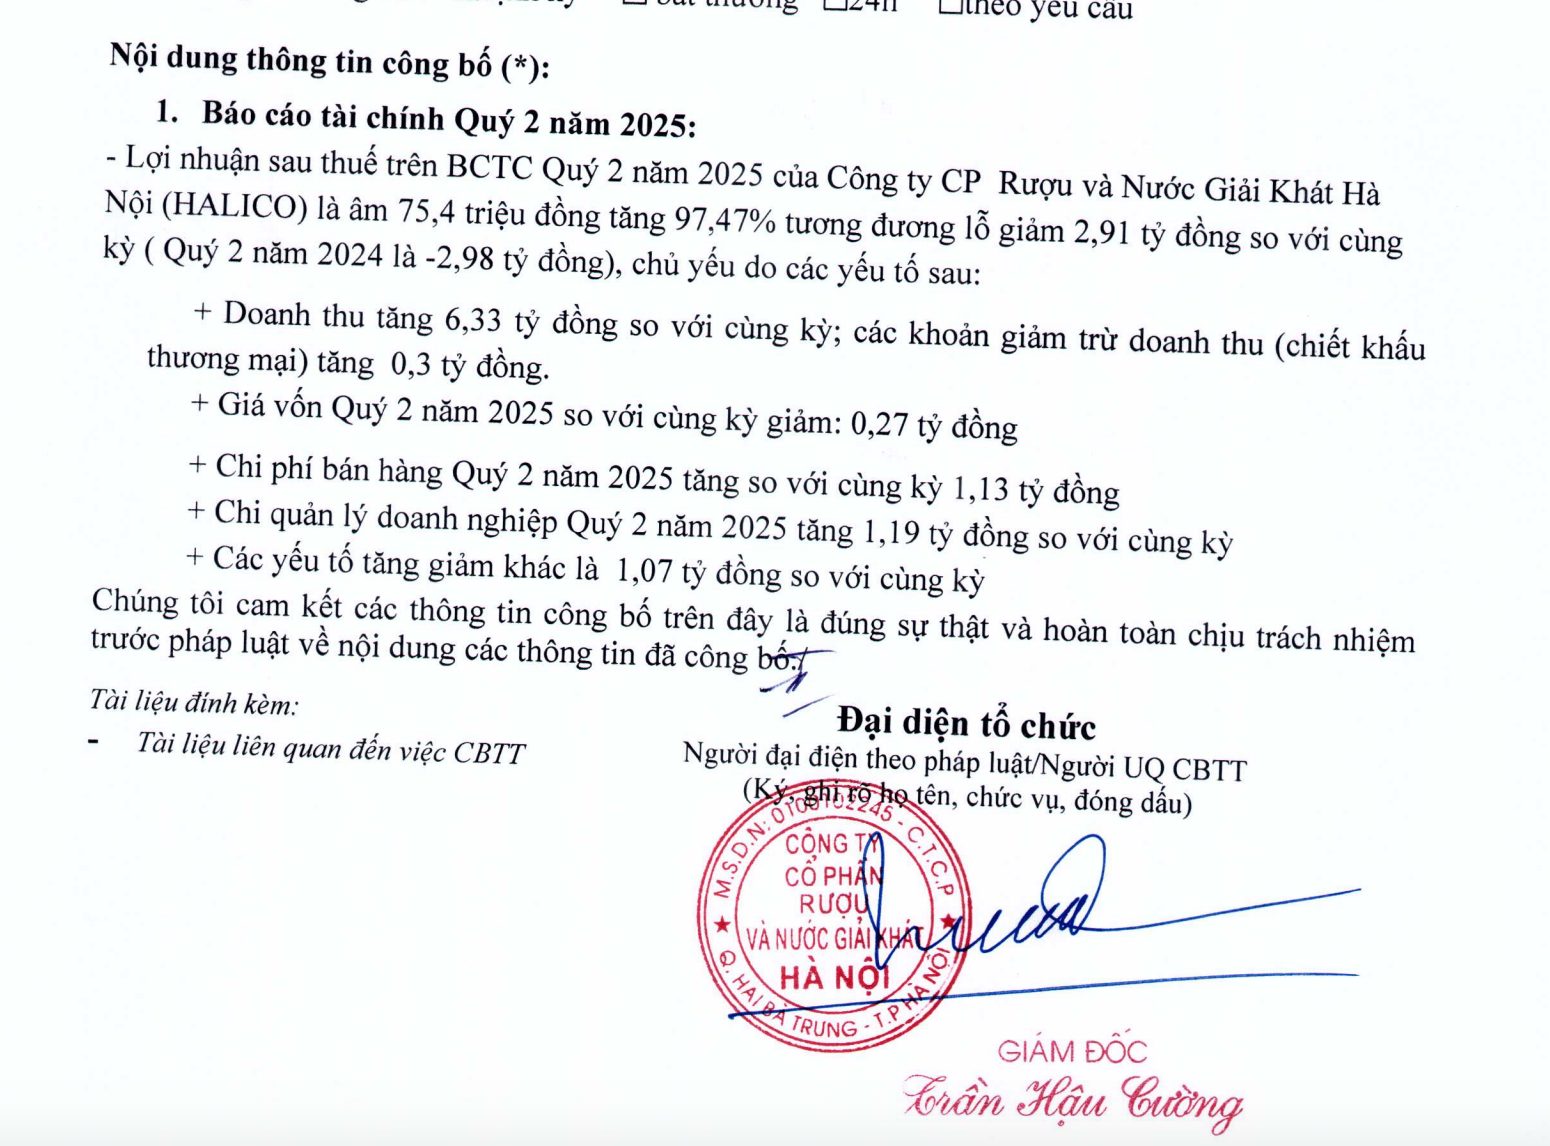 bất thường ☐24h ☐theo yêu cầu
Nội dung thông tin công bố (*):
1. Báo cáo tài chính Quý 2 năm 2025:
- Lợi nhuận sau thuế trên BCTC Quý 2 năm 2025 của Công ty CP Rượu và Nước Giải Khát Hà
Nội (HALICO) là âm 75,4 triệu đồng tăng 97,47% tương đương lỗ giảm 2,91 tỷ đồng so với cùng
kỳ ( Quý 2 năm 2024 là -2,98 tỷ đồng), chủ yếu do các yếu tố sau:
+ Doanh thu tăng 6,33 tỷ đồng so với cùng kỳ; các khoản giảm trừ doanh thu (chiết khấu
thương mại) tăng 0,3 tỷ đồng.
+ Giá vốn Quý 2 năm 2025 so với cùng kỳ giảm: 0,27 tỷ đồng
+ Chi phí bán hàng Quý 2 năm 2025 tăng so với cùng kỳ 1,13 tỷ đồng
+ Chi quản lý doanh nghiệp Quý 2 năm 2025 tăng 1,19 tỷ đồng so với cùng kỳ
+ Các yếu tố tăng giảm khác là 1,07 tỷ đồng so với cùng kỳ
Chúng tôi cam kết các thông tin công bố trên đây là đúng sự thật và hoàn toàn chịu trách nhiệm
trước pháp luật về nội dung các thông tin đã công bố./
Tài liệu đính kèm:
- Tài liệu liên quan đến việc CBTT
Đại diện tổ chức
Người đại điện theo pháp luật/Người UQ CBTT
(Ký, ghi rõ họ tên, chức vụ, đóng dấu)
M.S.D.N: 0100102245 - C.T.C.P
CÔNG TY
CỔ PHẦN
RƯỢU
VÀ NƯỚC GIẢI KHÁT
HÀ NỘI
Q. HAI BÀ TRƯNG - T.P HÀ NỘI
GIÁM ĐỐC
Trần Hậu Cường